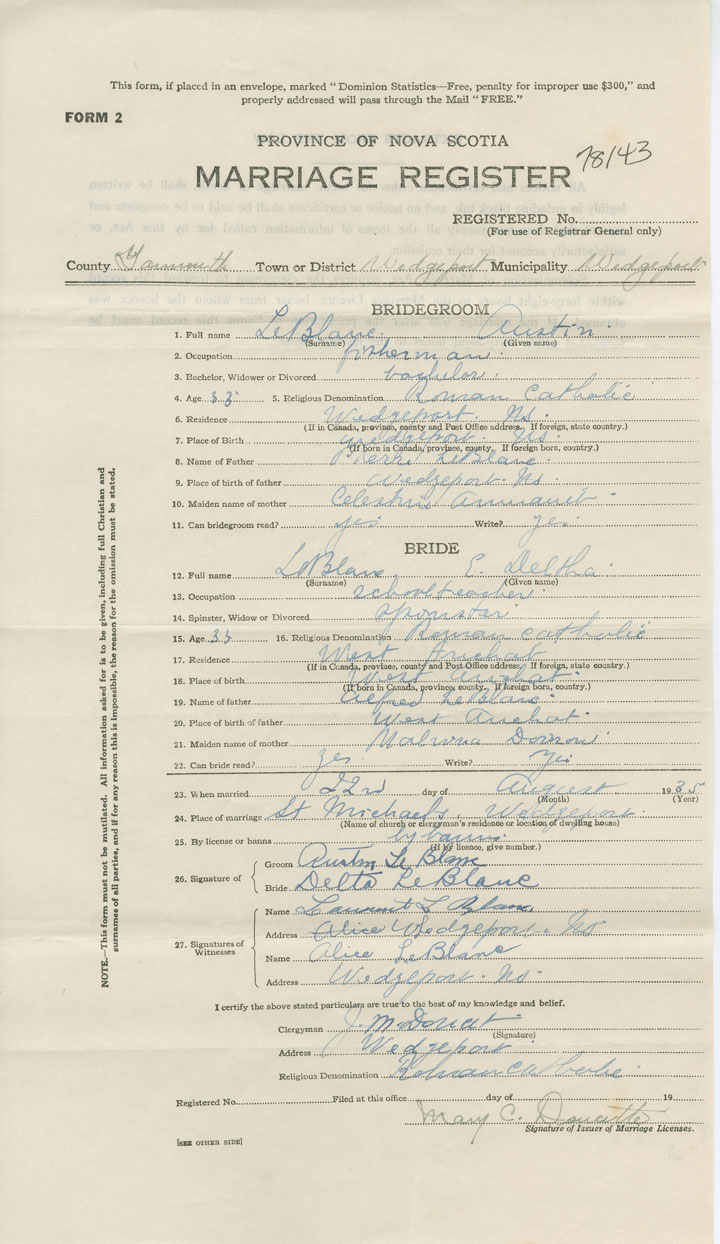 This form, if placed in an envelope, marked "Dominion Statistics—Free, penalty for improper use $300," and
properly addressed will pass through the Mail "FREE."
FORM 2
PROVINCE OF NOVA SCOTIA
78143
MARRIAGE REGISTER
REGISTERED No.
(For use of Registrar General only)
County Yarmouth Town or District Wedgeport Municipality Wedgeport
BRIDEGROOM
1. Full name LeBlanc Austin
(Surname) (Given name)
2. Occupation fisherman
3. Bachelor, Widower or Divorced bachelor
4. Age 33 5. Religious Denomination Roman Catholic
6. Residence Wedgeport. Ns.
(If in Canada, province, county and Post Office address. If foreign, state country.)
7. Place of Birth Wedgeport. Ns.
(If born in Canada, province, county. If foreign born, country.)
8. Name of Father LeBlanc
9. Place of birth of father Wedgeport. Ns.
10. Maiden name of mother
11. Can bridegroom read? yes Write? yes
BRIDE
12. Full name LeBlanc E. Deltha
(Surname) (Given name)
13. Occupation schoolteacher
14. Spinster, Widow or Divorced spinster
15. Age 33 16. Religious Denomination Roman Catholic
17. Residence West Arichat
(If in Canada, province, county and Post Office address. If foreign, state country.)
18. Place of birth West Arichat
(If born in Canada, province, county. If foreign born, country.)
19. Name of father Alfred LeBlanc
20. Place of birth of father West Arichat
21. Maiden name of mother
22. Can bride read? yes Write? Yes
23. When married 22nd day of August 1935
(Month) (Year)
24. Place of marriage St Michaels, Wedgeport
(Name of church or clergyman's residence or location of dwelling house)
25. By license or banns by banns
(If by licence, give number.)
26. Signature of
Groom Austin Le Blanc
Bride Delta LeBlanc
27. Signatures of Witnesses
Name L Blanc
Address Alice Wedgeport. Ns
Name Alice LeBlanc
Address Wedgeport. Ns.
I certify the above stated particulars are true to the best of my knowledge and belief.
Clergyman
(Signature)
Address Wedgeport
Religious Denomination Roman Catholic
Registered No. Filed at this office day of 19
Mary C. Doucette
Signature of Issuer of Marriage Licenses.
[SEE OTHER SIDE]
NOTE.—This form must not be mutilated. All information asked for is to be given, including full Christian and
surnames of all parties, and if for any reason this is impossible, the reason for the omission must be stated.